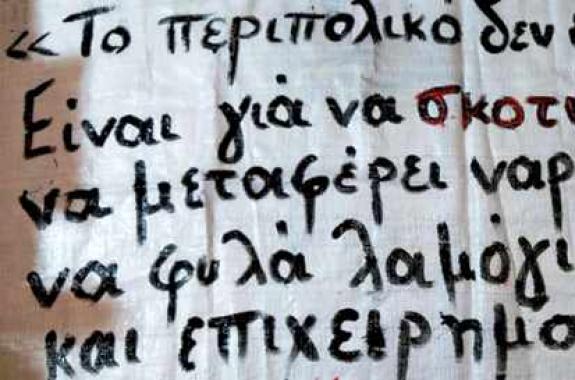 «Το περιπολικό δεν
Είναι γιά να σκοτ
να μεταφέρει ναρ
να φυλά λαμόγι
και επιχειρημα